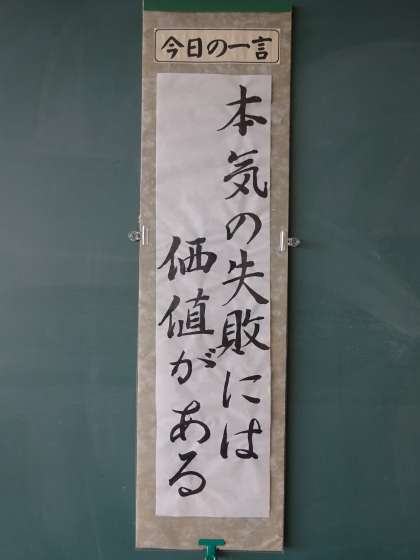 今日の一言
本気の失敗には
価値がある